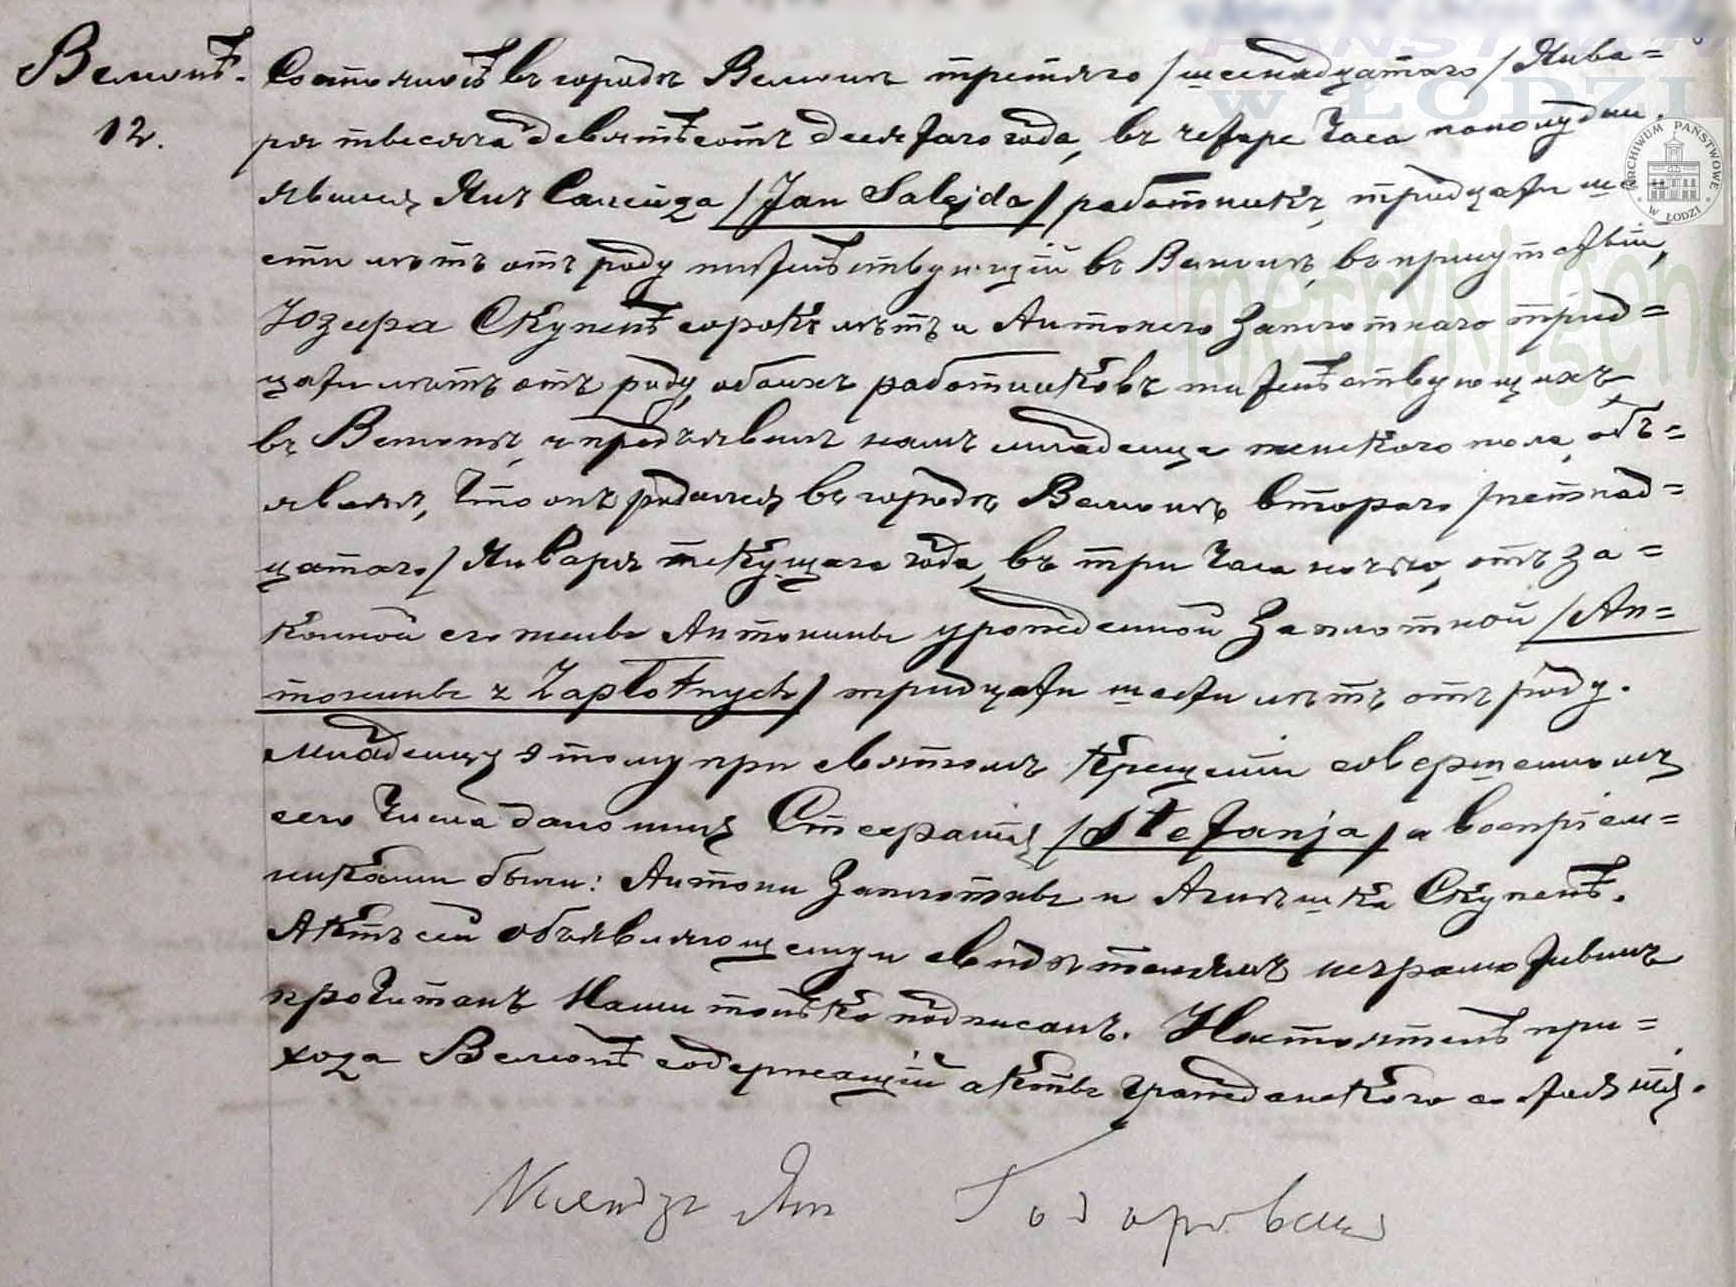 Велюнь.
12.
Состоялось въ городѣ Велюнѣ третяго /шеснадцатаго/ Янва=
ря тысяча девятьсотъ десятаго года, въ четыре часа пополудни.
явился Янъ Салейда /Jan Salejda/ работникъ, тридцати ше-
сти лѣтъ отъ роду жительствующій въ Велюнѣ, въ присутствіи,
Юзефа Скупень сорокъ лѣтъ и Антонего Заплотнаго трид=
цати лѣтъ отъ роду, обоихъ работниковъ жительствующихъ
въ Велюнѣ, и предъявилъ намъ младенца женскаго пола, объ=
являя, что онъ родился въ городѣ Велюнѣ второго /пятнад=
цатаго/ Января текущаго года, въ три часа ночью, отъ за=
конной его жены Антонины урожденной Заплотной /An=
тонины z Zapłotnych/ тридцати шести лѣтъ отъ роду.
Младенцу этому при святомъ крещеніи совершенномъ
сего числа дано имя Стефанія /Stefanja/ а воспріем=
никами были: Антони Заплотны и Агнѣшка Скупень.
Актъ сей объявляющему и свидѣтелямъ неграмотнымъ
прочитанъ Нами только подписанъ. Настоятель при=
хода Велюнь содержащій акты гражданскаго состоянія.
Ксендзъ Янъ